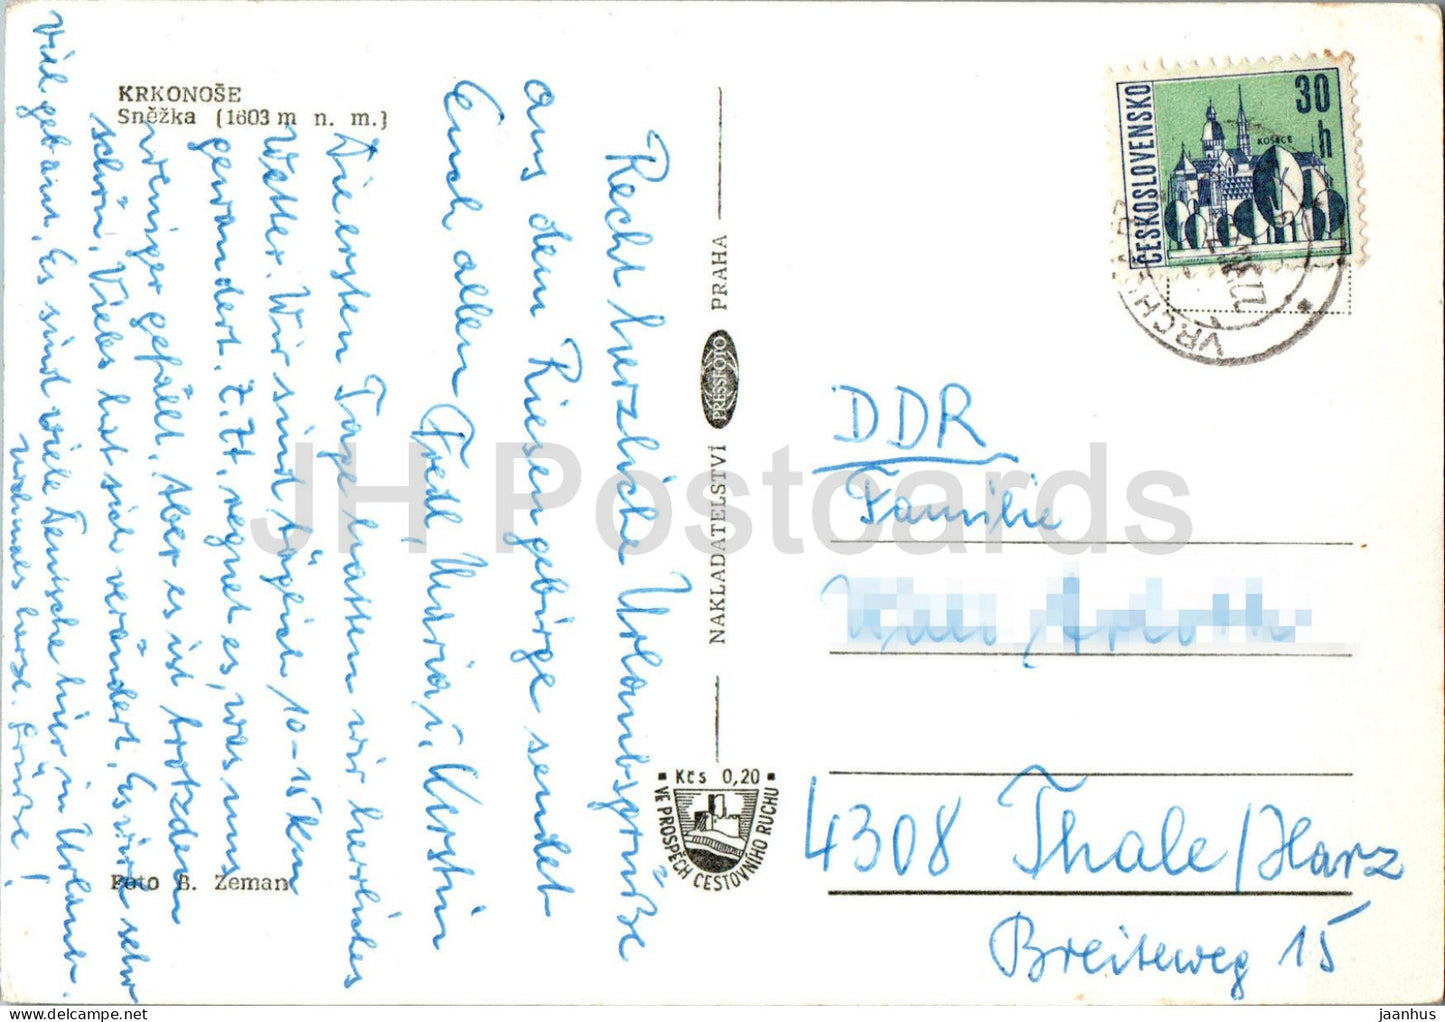 KRKONOŠE
Sněžka (1603 m n. m.)
Recht herzliche Urlaubsgrüße
aus dem Riesengebirge sendet
Euch allen Fredl, Maria u. Kerstin
Die ersten Tage hatten wir herrliches
Wetter. Wir sind täglich 10-15 km
gewandert. Z. Zt. regnet es, was uns
weniger gefällt. Aber es ist trotzdem
schön. Vieles hat sich verändert. Es wird sehr
viel gebaut. Es sind viele Deutsche hier in Urlaub.
Nochmals herzl. Grüße!
Foto B. Zeman
NAKLADATELSTVÍ PRESSFOTO PRAHA
Kčs 0,20
VE PROSPĚCH CESTOVNÍHO RUCHU
ČESKOSLOVENSKO
30 h
KOŠICE
VRCHLABÍ
DDR
Familie
4308 Thale/Harz
Breiteweg 15
JH Postcards
jaanhus